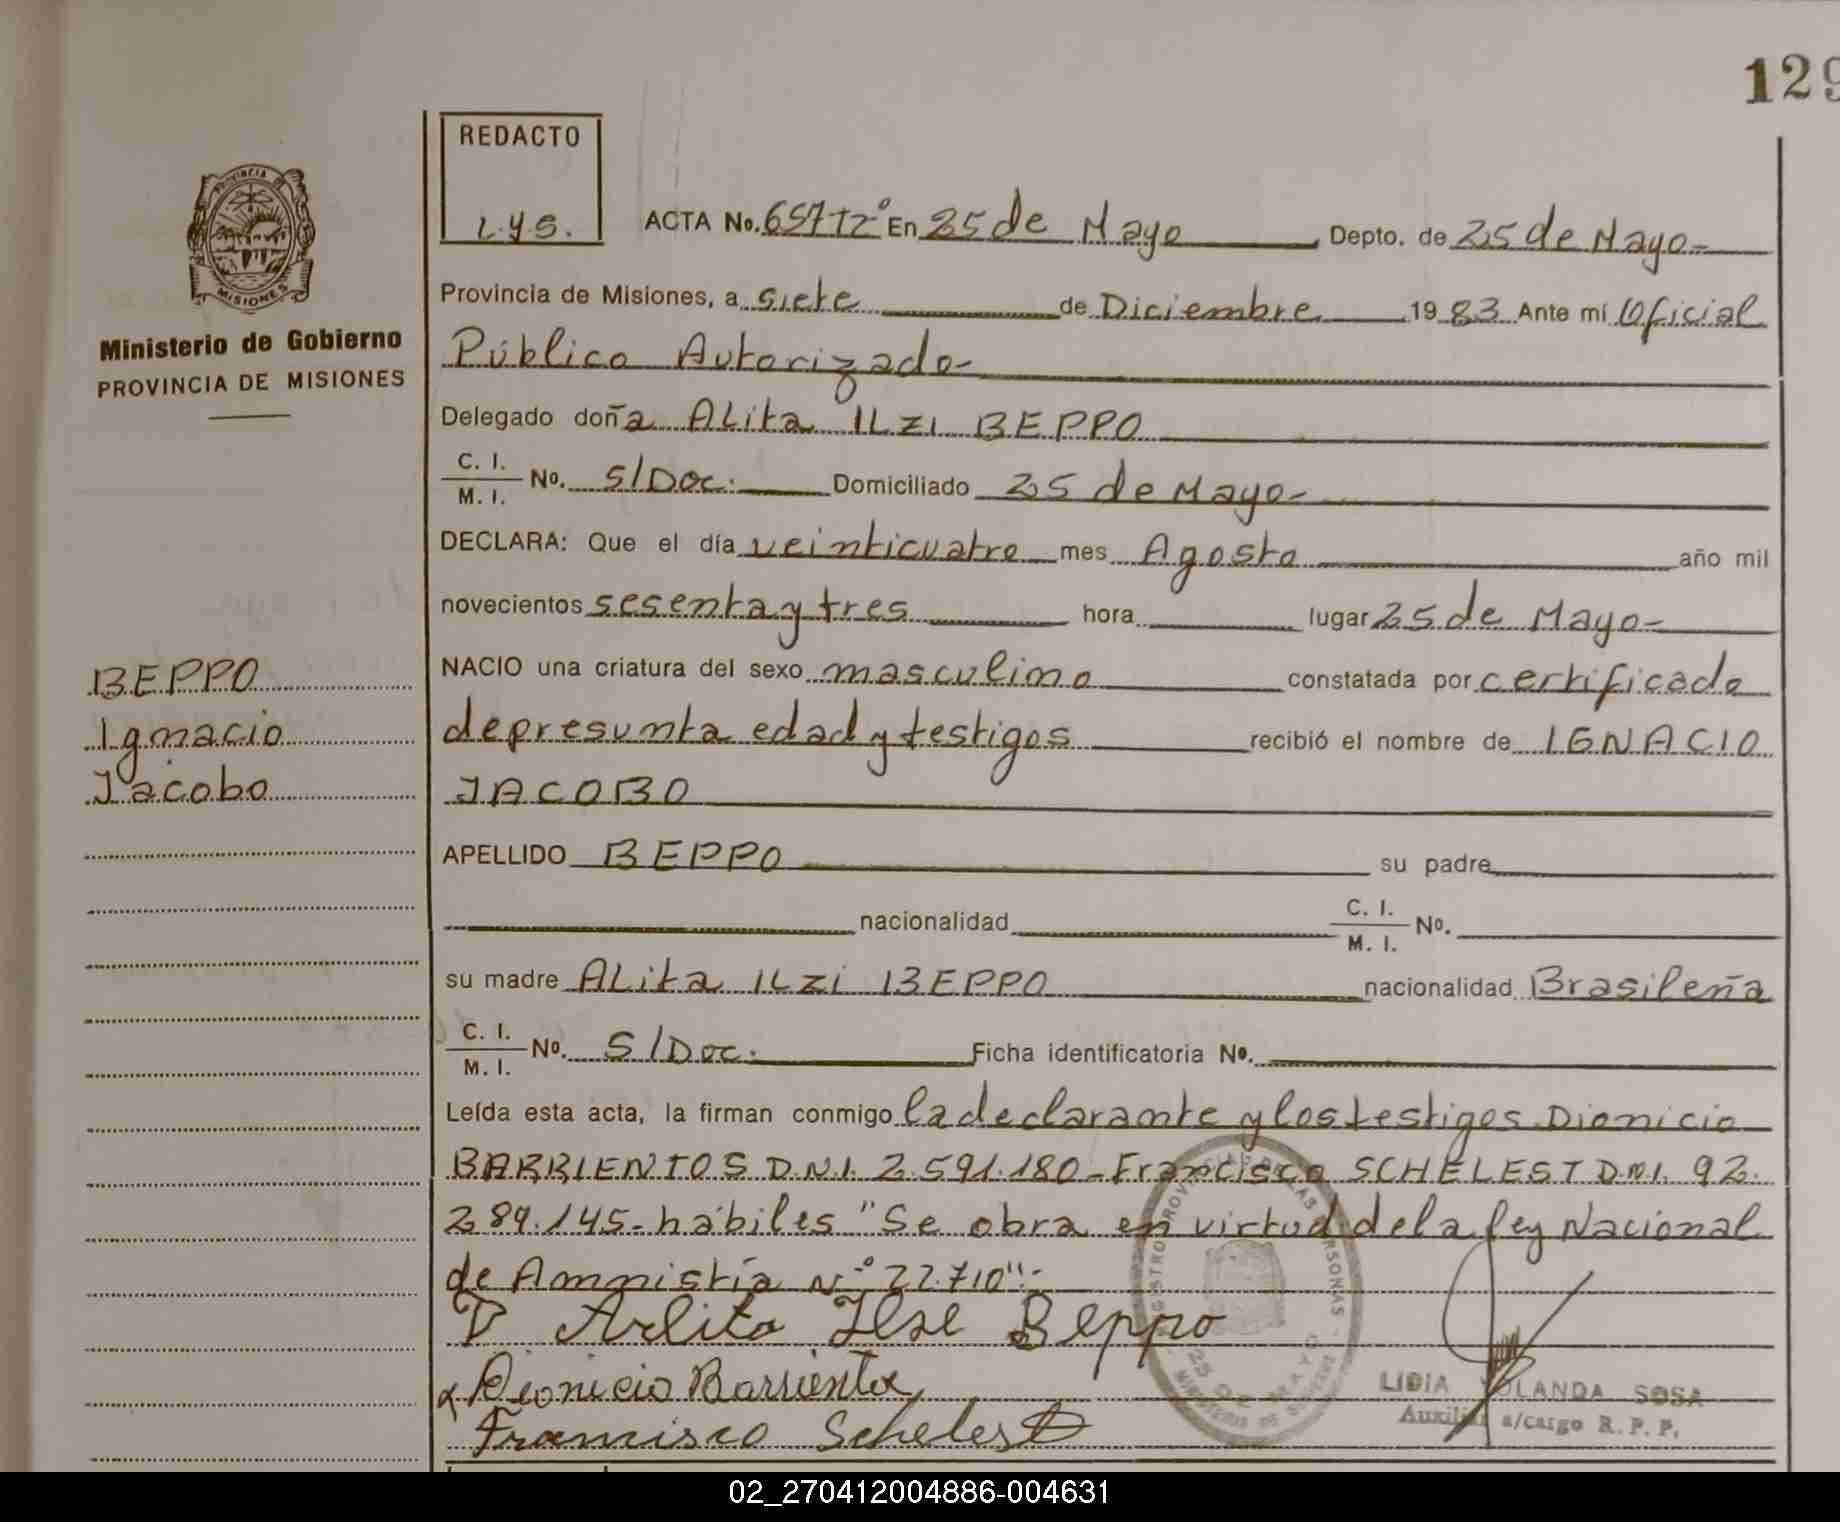 129
REDACTO
L.Y.S.
PROVINCIA DE
MISIONES
Ministerio de Gobierno
PROVINCIA DE MISIONES
ACTA No. 657Tº2º En 25 de Mayo Depto. de 25 de Mayo-
Provincia de Misiones, a siete de Diciembre 1983 Ante mí Oficial
Público Autorizado-
Delegado doña ALita ILZI BEPPO
C. I.
M. I. No. S/Doc. Domiciliado 25 de Mayo-
DECLARA: Que el día veinticuatro mes Agosto año mil
novecientos sesenta y tres hora lugar 25 de Mayo-
NACIO una criatura del sexo masculino constatada por certificado
de presunta edad y testigos recibió el nombre de IGNACIO
JACOBO
BEPPO
Ignacio
Jacobo
APELLIDO BEPPO su padre
nacionalidad C. I.
M. I. No.
su madre ALita ILZi BEPPO nacionalidad Brasileña
C. I.
M. I. No. S/Doc. Ficha identificatoria No.
Leída esta acta, la firman conmigo la declarante y los testigos Dionicio
BARRIENTOS D.N.I. 2.591.180-Francisco SCHELEST D.N.I. 92.
289.145-hábiles "Se obra en virtud de la ley Nacional
de Amnistía Nº 22.710".-
Arlita Ilse Beppo
Dionicio Barrientos
Francisco Schelest
LIDIA YOLANDA SOSA
Auxiliar a/cargo R. P. P.
25 DE MAYO
02_270412004886-004631